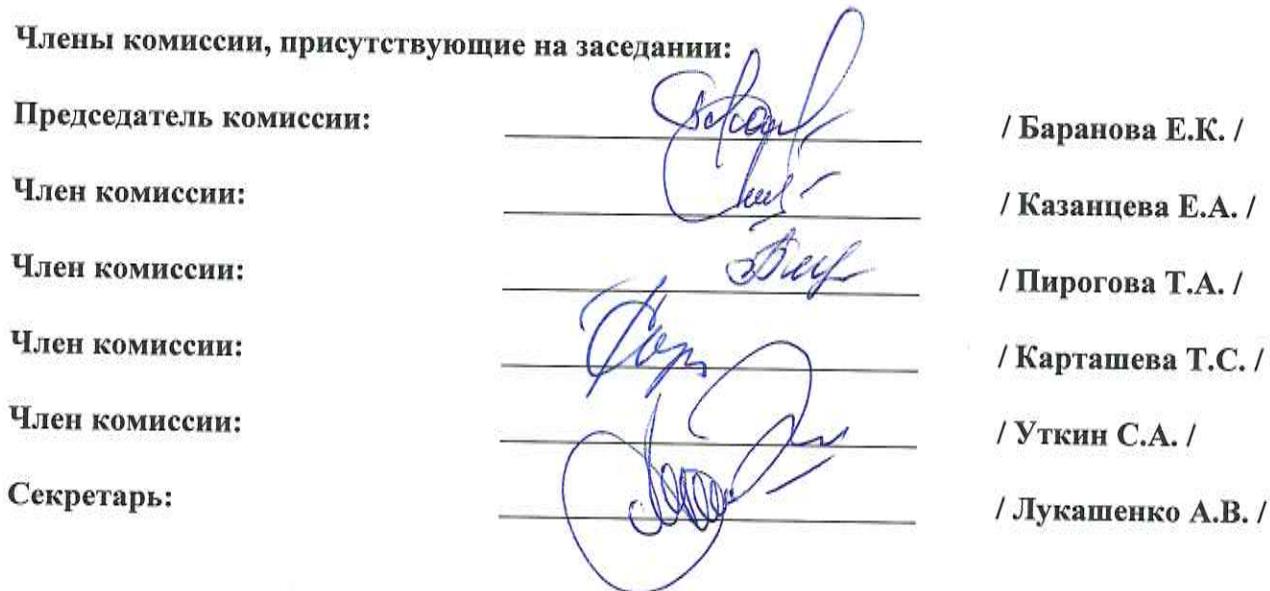 Члены комиссии, присутствующие на заседании:
Председатель комиссии: / Баранова Е.К. /
Член комиссии: / Казанцева Е.А. /
Член комиссии: / Пирогова Т.А. /
Член комиссии: / Карташева Т.С. /
Член комиссии: / Уткин С.А. /
Секретарь: / Лукашенко А.В. /